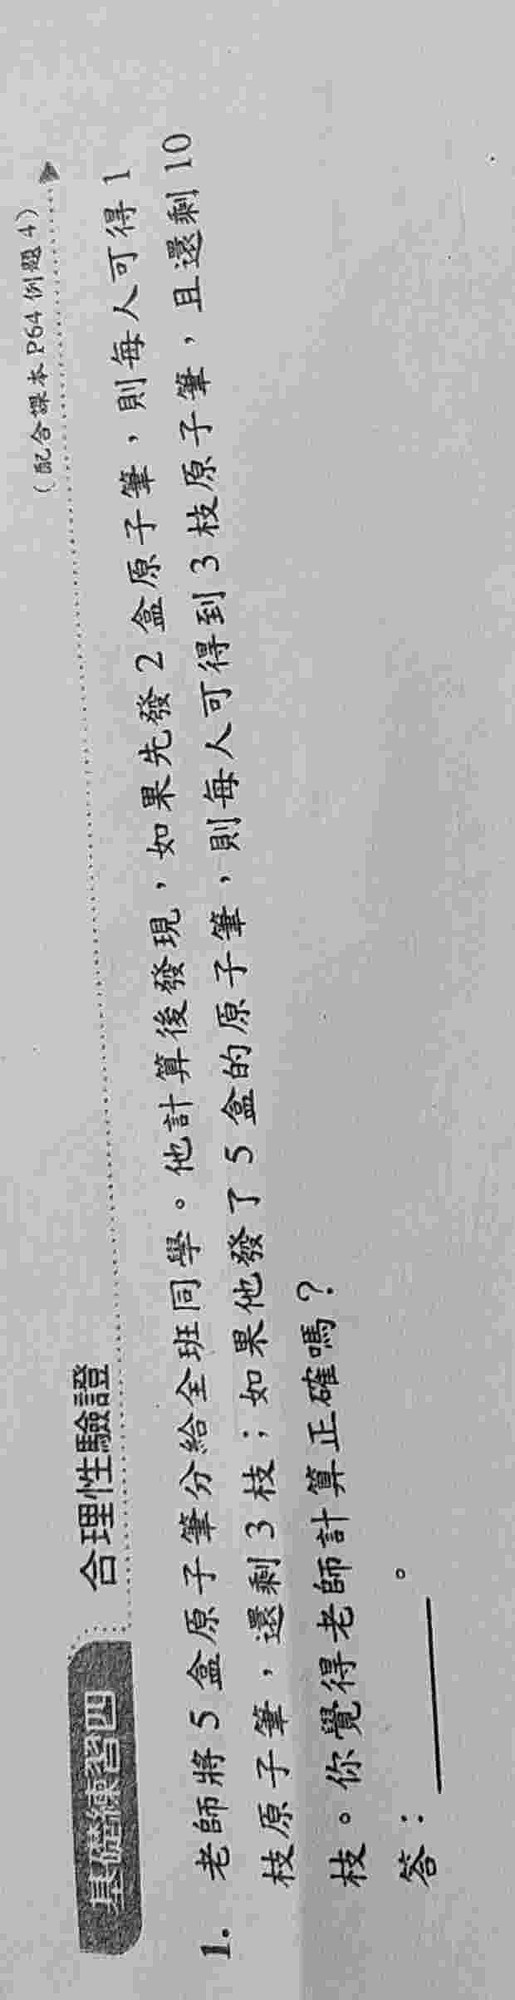 基礎練習四 合理性驗證
(配合課本 P64 例題 4)
1. 老師將 5 盒原子筆分給全班同學。他計算後發現，如果先發 2 盒原子筆，則每人可得 1
枝原子筆，還剩 3 枝；如果他發了 5 盒的原子筆，則每人可得到 3 枝原子筆，且還剩 10
枝。你覺得老師計算正確嗎？
答：＿＿＿＿。